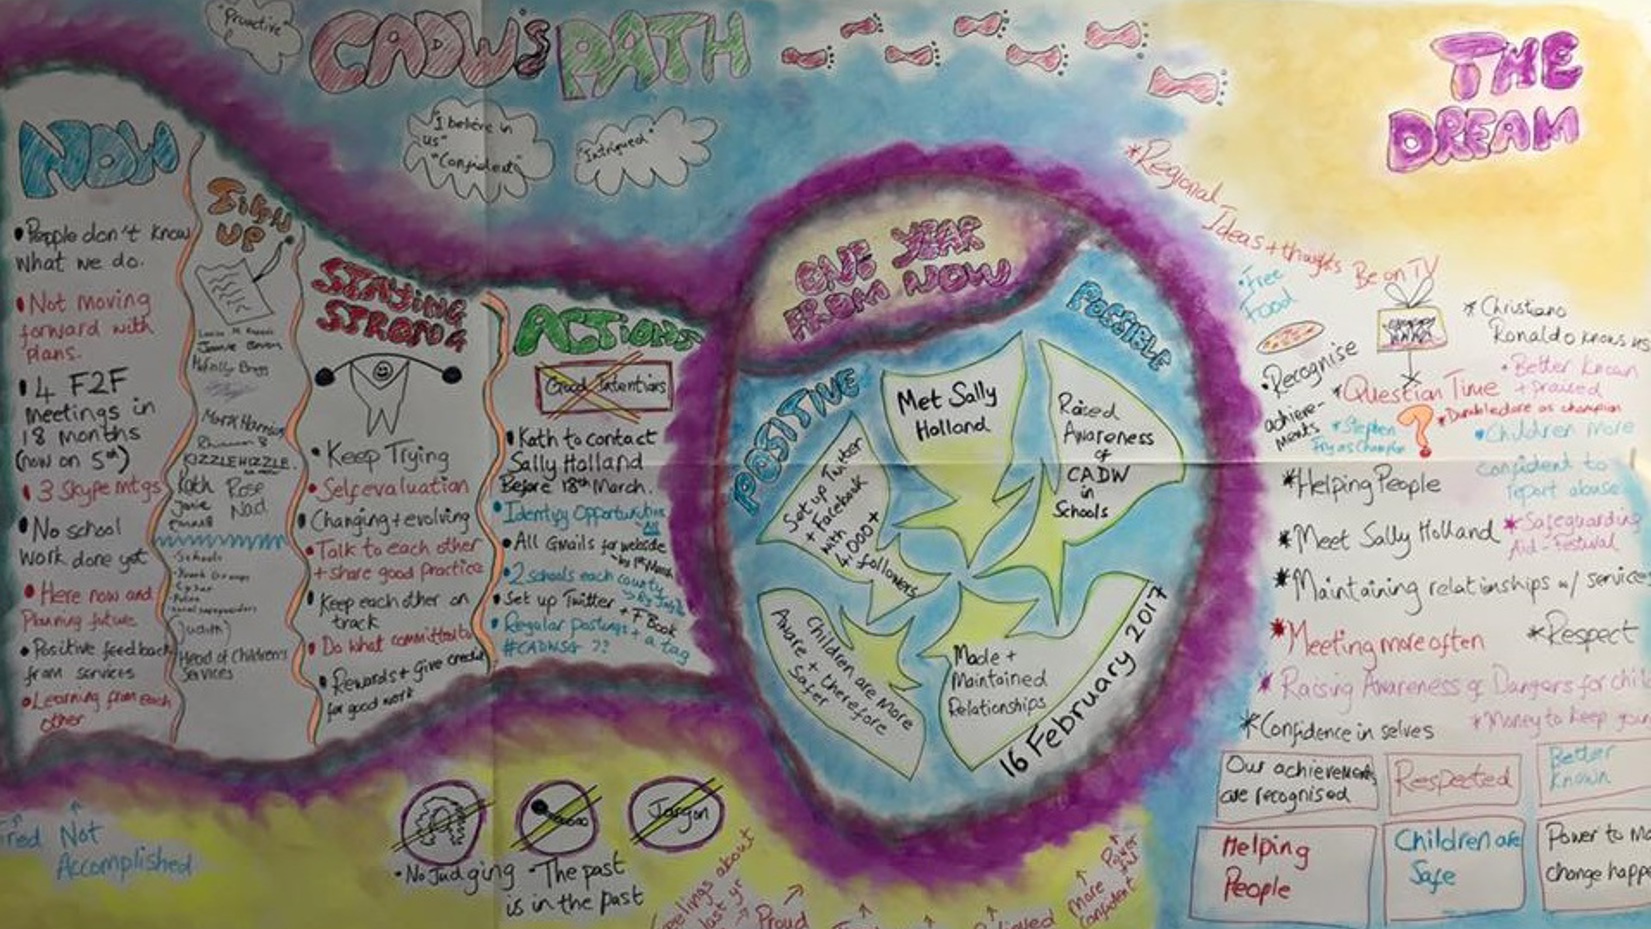 "Proactive"
CADW's PATH
"I believe in
us"
"Confident"
"Intrigued"
THE
DREAM
NOW
• People don't know
what we do.
• Not moving
forward with
plans.
• 4 F2F
meetings in
18 months
(now on 5th)
• 3 Skype mtgs
• No school
work done yet
• Here now and
Planning future
• Positive feedback
from services
• Learning from each
other
SIGN
UP
KIZZLEWIZZLE
Kath Rose
Nad
- Schools
- Police
(Judith)
Head of Children's
Services
STAYING
STRONG
• Keep Trying
• Self evaluation
• Changing + evolving
• Talk to each other
+ share good practice
• Keep each other on
track
• Do what committed to
• Rewards + Give credit
for good work
ACTIONS
Good Intentions
• Kath to contact
Sally Holland
Before 18th March.
• Identify Opportunities
All
• All Gmails for website
by 1st March
• 2 schools each county
• Set up Twitter + F Book
• Regular postings + a tag
#CADWSG ??
ONE YEAR
FROM NOW
POSITIVE
POSSIBLE
Met Sally
Holland
Raised
Awareness
of
CADW
in
Schools
Set up Twitter
+ Facebook
with
1,000+
followers
Children are More
Aware + therefore
Safer
Made +
Maintained
Relationships
16 February 2017
* Regional
Ideas + thoughts
Be on TV
• Free
Food
• Recognise
achieve-
ments
* Christiano
Ronaldo knows us
• Better known
+ praised
* Question Time
• Dumbledore as champion
* Stephen
Fry as Champion
?
• Children more
confident to
report abuse
* Helping People
* Meet Sally Holland
* Safeguarding
Aid - Festival
* Maintaining relationships w/ service
* Meeting more often
* Respect
* Raising Awareness of Dangers for chil
* Confidence in selves
* Money to keep
Our achievements
are recognised
Respected
Better
Known
Helping
People
Children are
Safe
Power to
change happ
Not
Accomplished
• No Judging
• The past
is in the past
Jargon
Feelings about
last yr
Proud
More
Confident